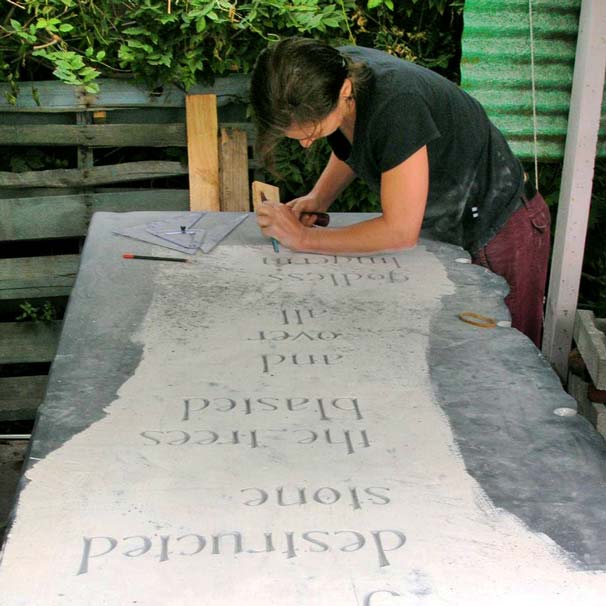 destructed
stone
the trees
blasted
and
over
all
godless
lingerin